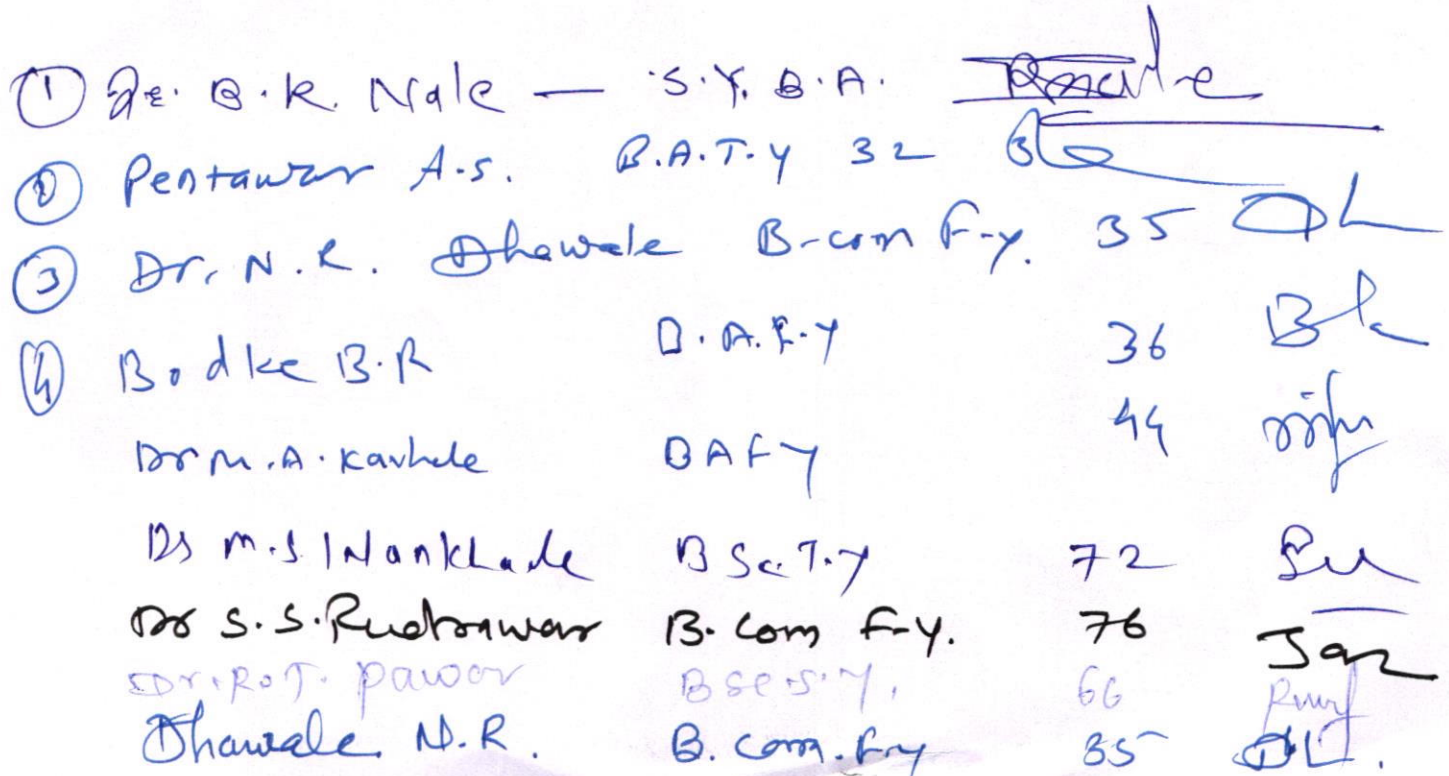 ① प्रा. B.K. Nale — S.Y. B.A.
② Pentawar A.S. B.A.T.Y 32
③ Dr. N.R. Dhawale B-com F-y. 35
④ Bodke B.R B.A.F.Y 36
Dr M.A. Kavhale BAFY 44
Dr M.S. Wankhade BSc.T.y 72
Dr S.S. Rudrawar B.Com F-y. 76
Dr. R.T. Pawar BSc.S.Y. 66
Dhawale N.R. B.com.F.y 35